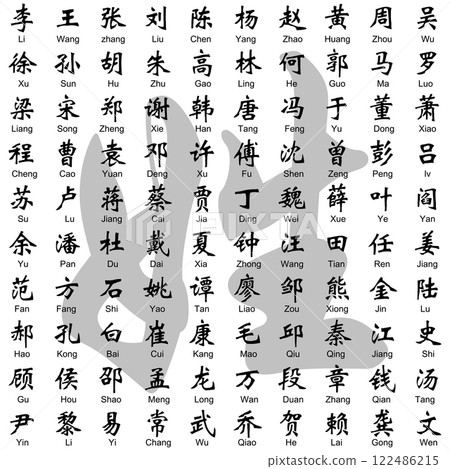 李 王 张 刘 陈 杨 赵 黄 周 吴
Li Wang zhang Liu Chen Yang Zhao Huang Zhou Wu
徐 孙 胡 朱 高 林 何 郭 马 罗
Xu Sun Hu Zhu Gao Ling He Guo Ma Luo
梁 宋 郑 谢 韩 唐 冯 于 董 萧
Liang Song Zheng Xie Han Tang Feng Yu Dong Xiao
程 曹 袁 邓 许 傅 沈 曾 彭 吕
Cheng Cao Yuan Deng Xu Fu Shen Zeng Peng lv
苏 卢 蒋 蔡 贾 丁 魏 薛 叶 阎
Su Lu Jiang Cai Jia Ding Wei Xue Ye Yan
余 潘 杜 戴 夏 钟 汪 田 任 姜
Yu Pan Du Dai Xia Zhong Wang Tian Ren Jiang
范 方 石 姚 谭 廖 邹 熊 金 陆
Fan Fang Shi Yao Tan Liao Zou Xiong Jin Lu
郝 孔 白 崔 康 毛 邱 秦 江 史
Hao Kong Bai Cui Kang Mao Qiu Qing Jiang Shi
顾 侯 邵 孟 龙 万 段 章 钱 汤
Gu Hou Shao Meng Long Wan Duan Zhang Qian Tang
尹 黎 易 常 武 乔 贺 赖 龚 文
Yin Li Yi Chang Wu Qiao He Lai Gong Wen
姓
PIXTA
122486215